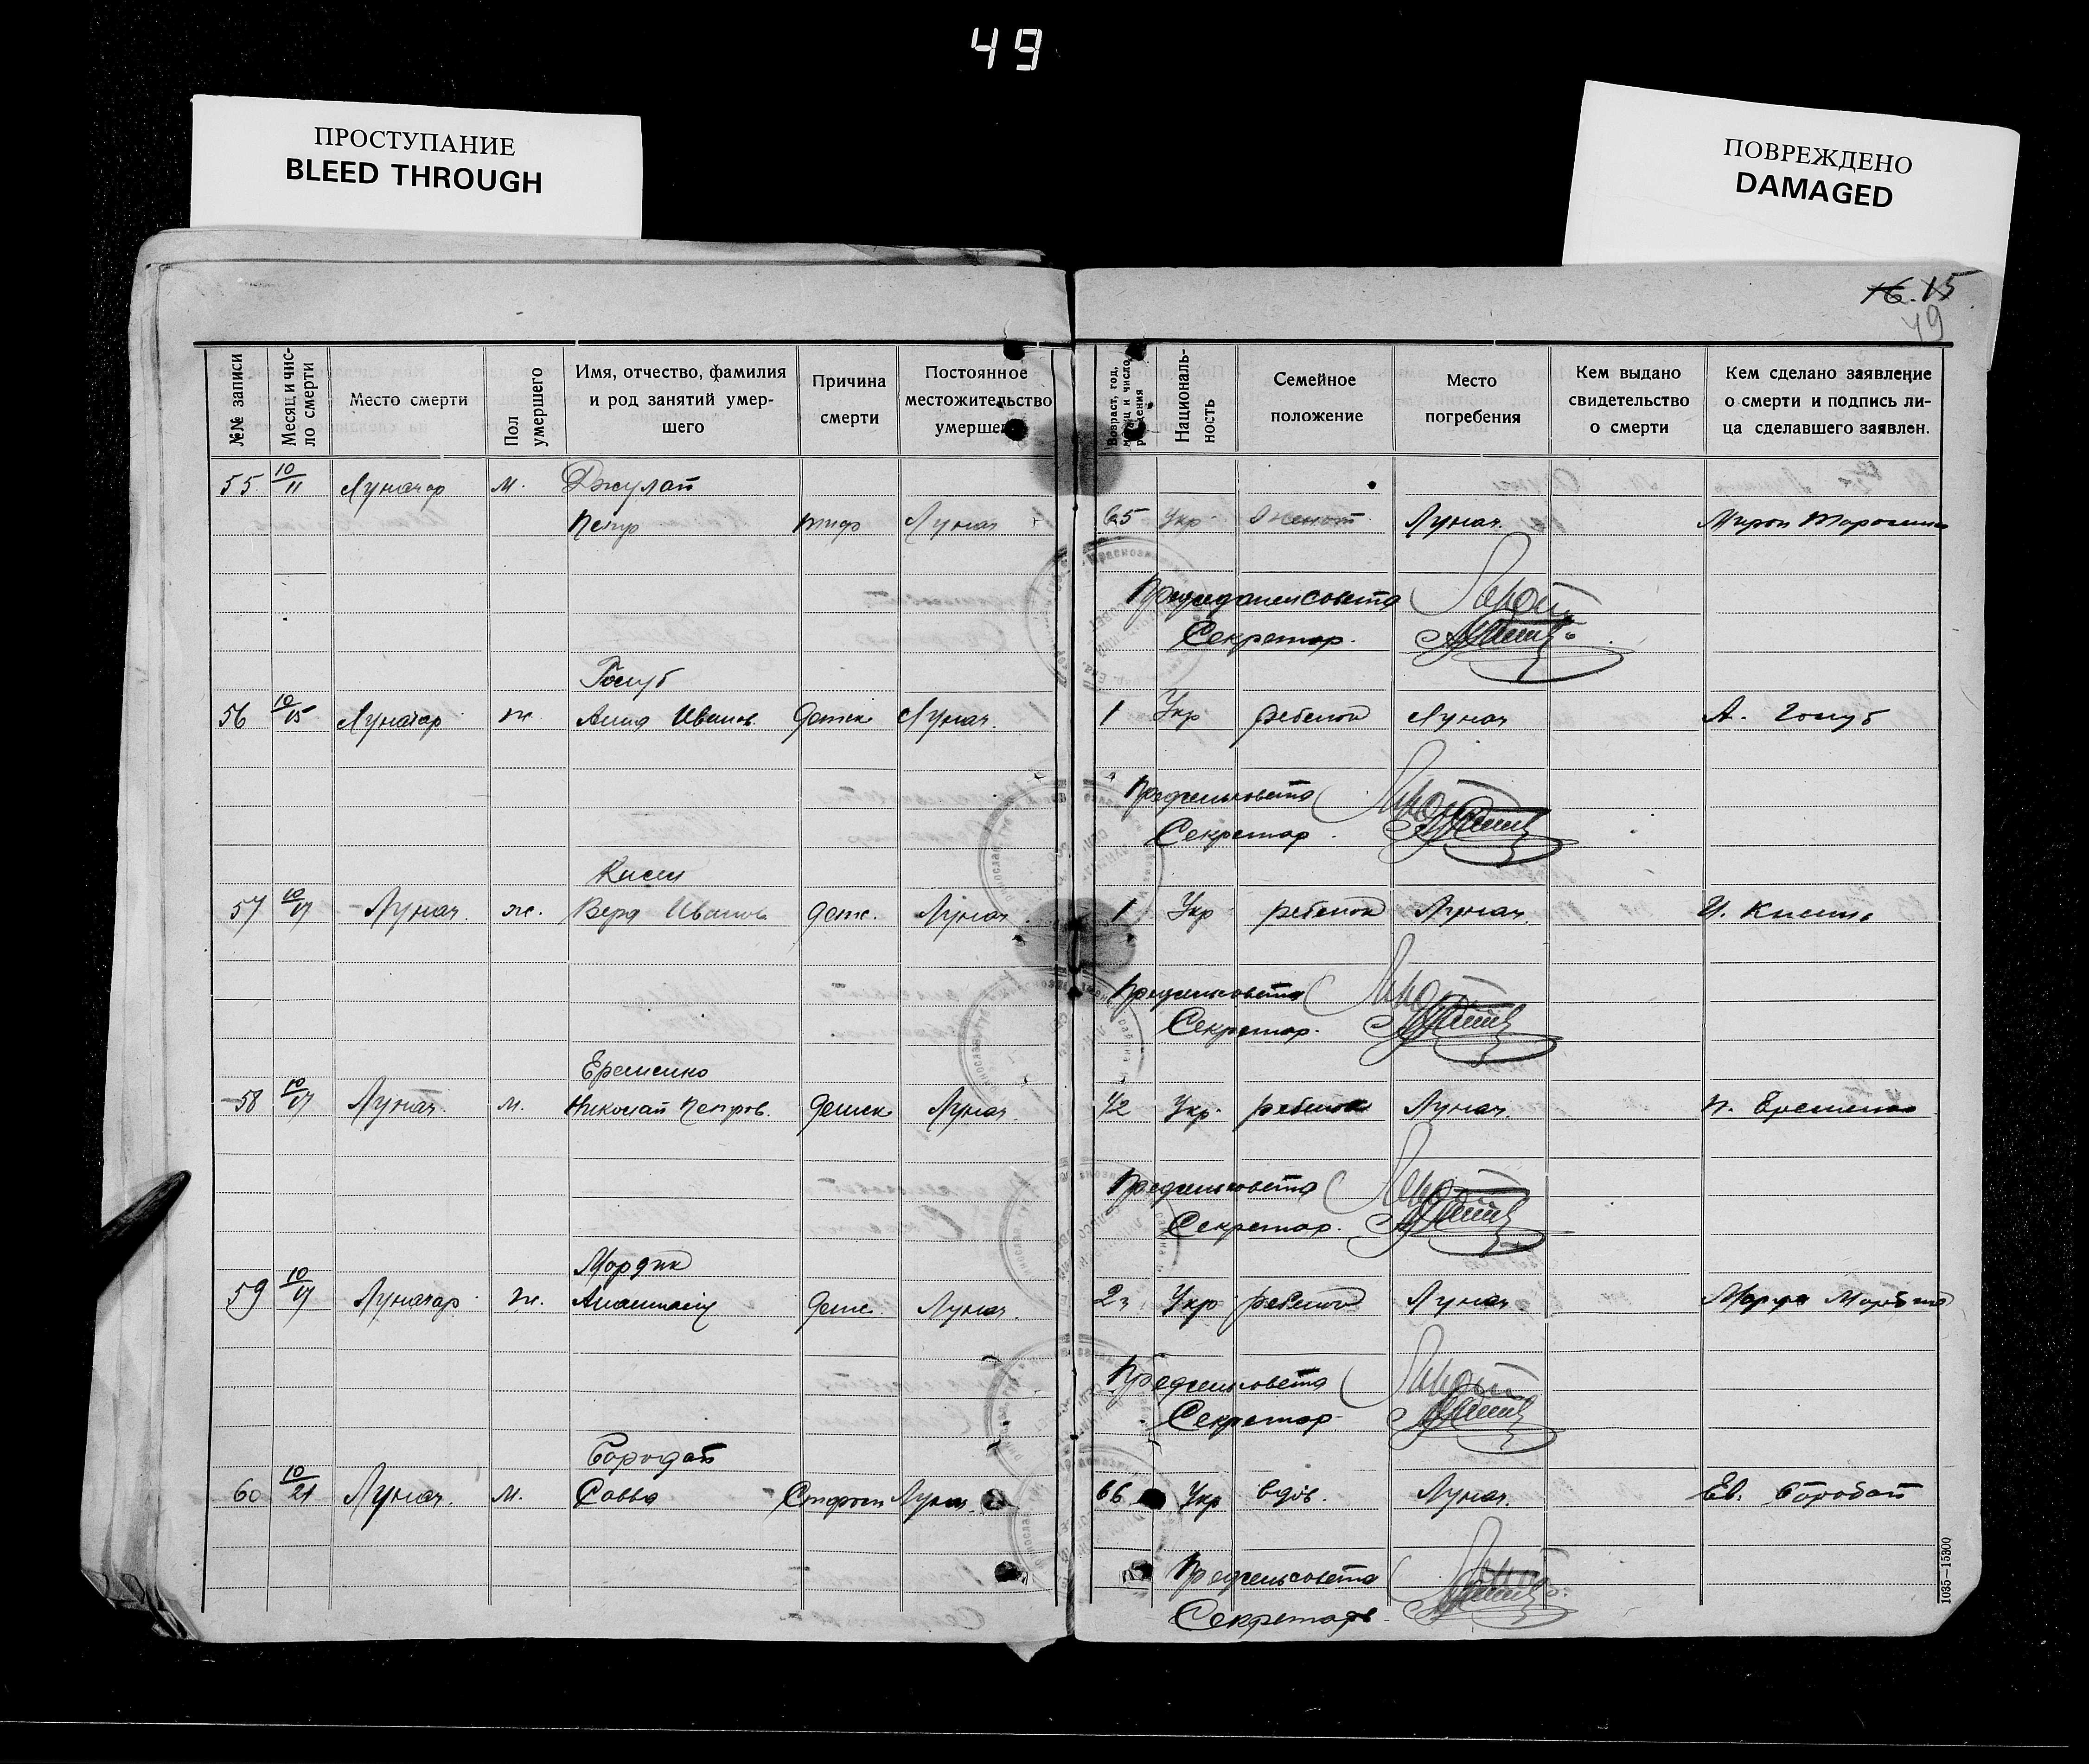 49
ПРОСТУПАНИЕ
BLEED THROUGH
ПОВРЕЖДЕНО
DAMAGED
16. 15
49
№№ записи
Месяц и число смерти
Место смерти
Пол умершего
Имя, отчество, фамилия и род занятий умершего
Причина смерти
Постоянное местожительство
Возраст, год,
Националь-ность
Семейное положение
Место погребения
Кем выдано свидетельство о смерти
Кем сделано заявление о смерти и подпись ли-ца сделавшего заявлен.
55 10/11 Луначар м. Джулай
Петр тиф Лунач 65 Укр Женат Лунач. Мирон
Председатель совета
Секретар.
Голуб
56 10/15 Луначар ж. Анна Иванов. детск Лунач. 1 Укр ребенок Лунач А. Голуб
Предсельсовета
Секретар
57 10/17 Лунач. ж. Вера Иванов детс. Лунач 1 Укр ребенок Лунач.
Предсельсовета
Секретар.
Еременко
58 10/17 Лунач. м. Николай Петров. детск Лунач 1/2 Укр. ребенок Лунач. П. Еременко
Предсельсовета
Секретар.
59 10/17 Луначар ж. Анастасия детс Лунач. 2 Укр ребенок Лунач
Предсельсовета
Секретар
Бородай
60 10/21 Лунач. м. Савва Лунач 66 Укр вдов. Лунач. Ев. Бородай
Предсельсовета
Секретарь
1035—15300